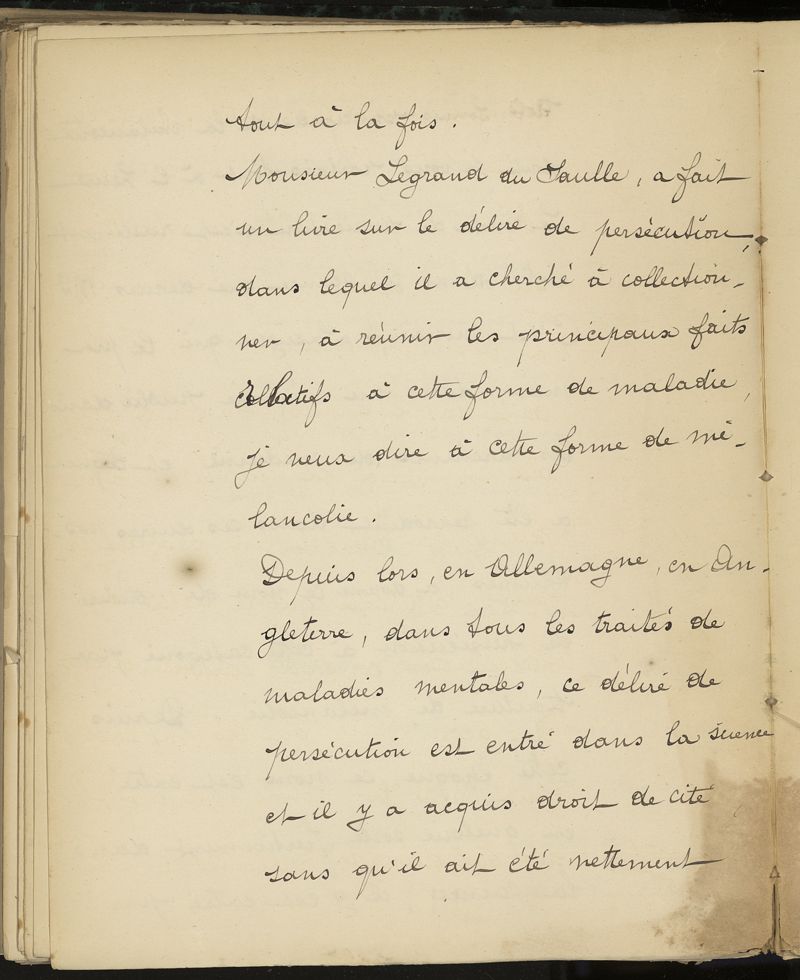 tout à la fois.
Monsieur Legrand du Saulle, a fait
un livre sur le délire de persécution,
dans lequel il a cherché à collection-
ner, à réunir les principaux faits
relatifs à cette forme de maladie,
je veux dire à cette forme de mé-
lancolie.
Depuis lors, en Allemagne, en An-
gleterre, dans tous les traités de
maladies mentales, ce délire de
persécution est entré dans la science
et il y a acquis droit de cité
sans qu'il ait été nettement